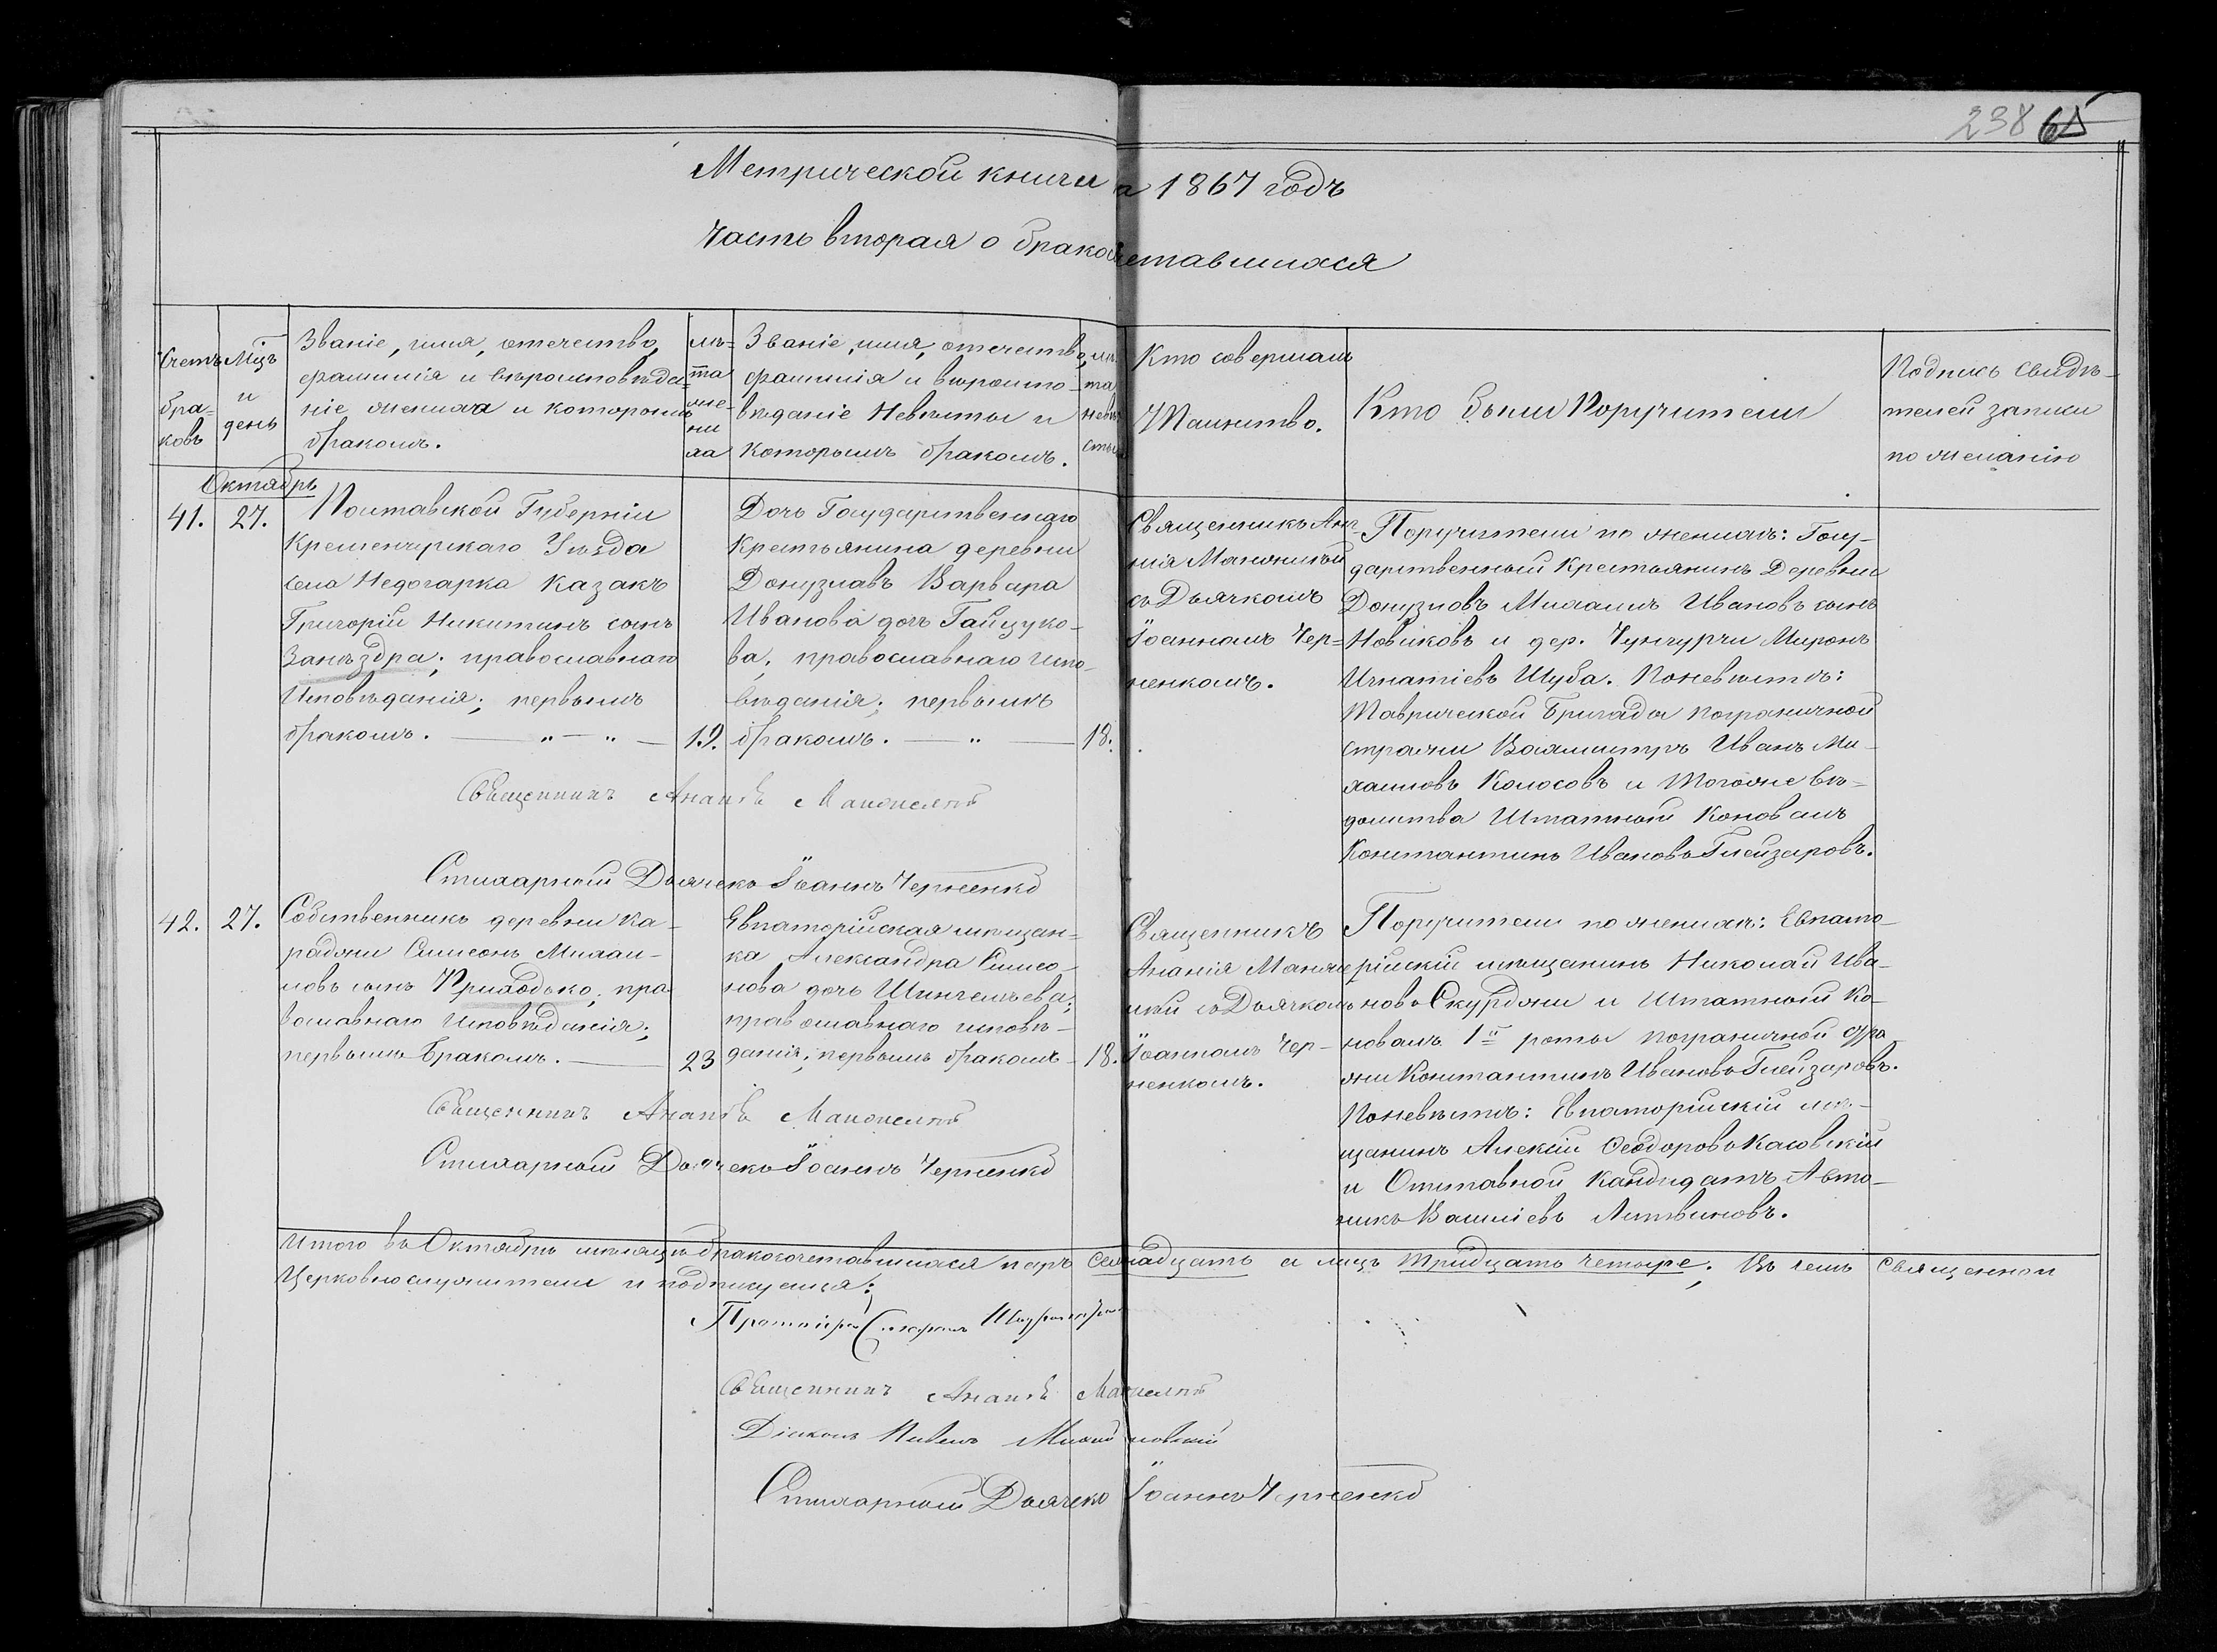 238 65
Метрической книги на 1867 годъ
Часть вторая о бракосочетавшихся
Счетъ браковъ
Мцъ и день
Званіе, имя, отечество,
фамилія и вѣроисповѣда-
ніе жениха и которымъ
бракомъ.
лѣ-
та
же-
ни
ха
Званіе, имя, отечество,
фамилія и вѣроиспо-
вѣданіе Невѣсты и
которымъ бракомъ.
лѣ-
та
невѣ
сты
Кто совершалъ
Таинство.
Кто были Поручители
Подпись свидѣ-
телей записи
по желанію
Октябрь
41.
27.
Полтавской Губерніи
Кременчугскаго Уѣзда
села Недогарка казакъ
Григорій Никитинъ сынъ
Занѣздра; православнаго
Исповѣданія; первымъ
бракомъ. — „ — „ —
19.
Дочь Государственнаго
Крестьянина деревни
Донузлавъ Варвара
Иванова дочь Гайдуко-
ва, православнаго испо-
вѣданія; первымъ
бракомъ. — „ —
18.
Священникъ Ана-
нія Маножинскій
съ Дьячкомъ
Іоанномъ Чер-
ненкомъ.
Поручители по женихѣ: Госу-
дарственный Крестьянинъ Деревни
Донузловъ Михаилъ Ивановъ сынъ
Новиковъ и дер. Чунгурчи Миронъ
Игнатіевъ Шуба. По невѣстѣ:
Таврической Бригады пограничной
стражи Вахмистръ Иванъ Ми-
хаиловъ Колосовъ и того же вѣ-
домства Штатный Коновалъ
Константинъ Ивановъ Глейзаровъ.
Священникъ Ананія
Стихарный Дьячекъ Іоаннъ Черненко
42.
27.
Собственникъ деревни Ка-
раджи Симеонъ Михаи-
ловъ сынъ Приходько; пра-
вославнаго Исповѣданія;
первымъ бракомъ. —
23
Евпаторійская мѣщан-
ка Александра Симео-
нова дочь Шингелѣева;
православнаго исповѣ-
данія; первымъ бракомъ —
18.
Священникъ
Ананія Манжи
съ Дьячкомъ
Іоанномъ Чер-
ненкомъ.
Поручители по женихѣ: Евпато-
рійскій мѣщанинъ Николай Ива-
новъ Скурджи и Штатный Ко-
новалъ 1й роты пограничной стра
жи Константинъ Ивановъ Глейзаровъ.
По невѣстѣ: Евпаторійскій мѣ-
щанинъ Алексій Ѳеодоровъ Касовскій
и Отставной Кандидатъ
Василіевъ Литвиновъ.
Священникъ Ананія
Стихарный Дьячекъ Іоаннъ Черненко
Итого въ Октябрѣ мѣсяцѣ бракосочетавшихся паръ семнадцать а лицъ тридцать четыре; Въ чемъ Священно и
Церковнослужители и подписуемся:
Протоіерей
Священникъ Ананія
Діаконъ Павелъ
Стихарный Дьячекъ Іоаннъ Черненко